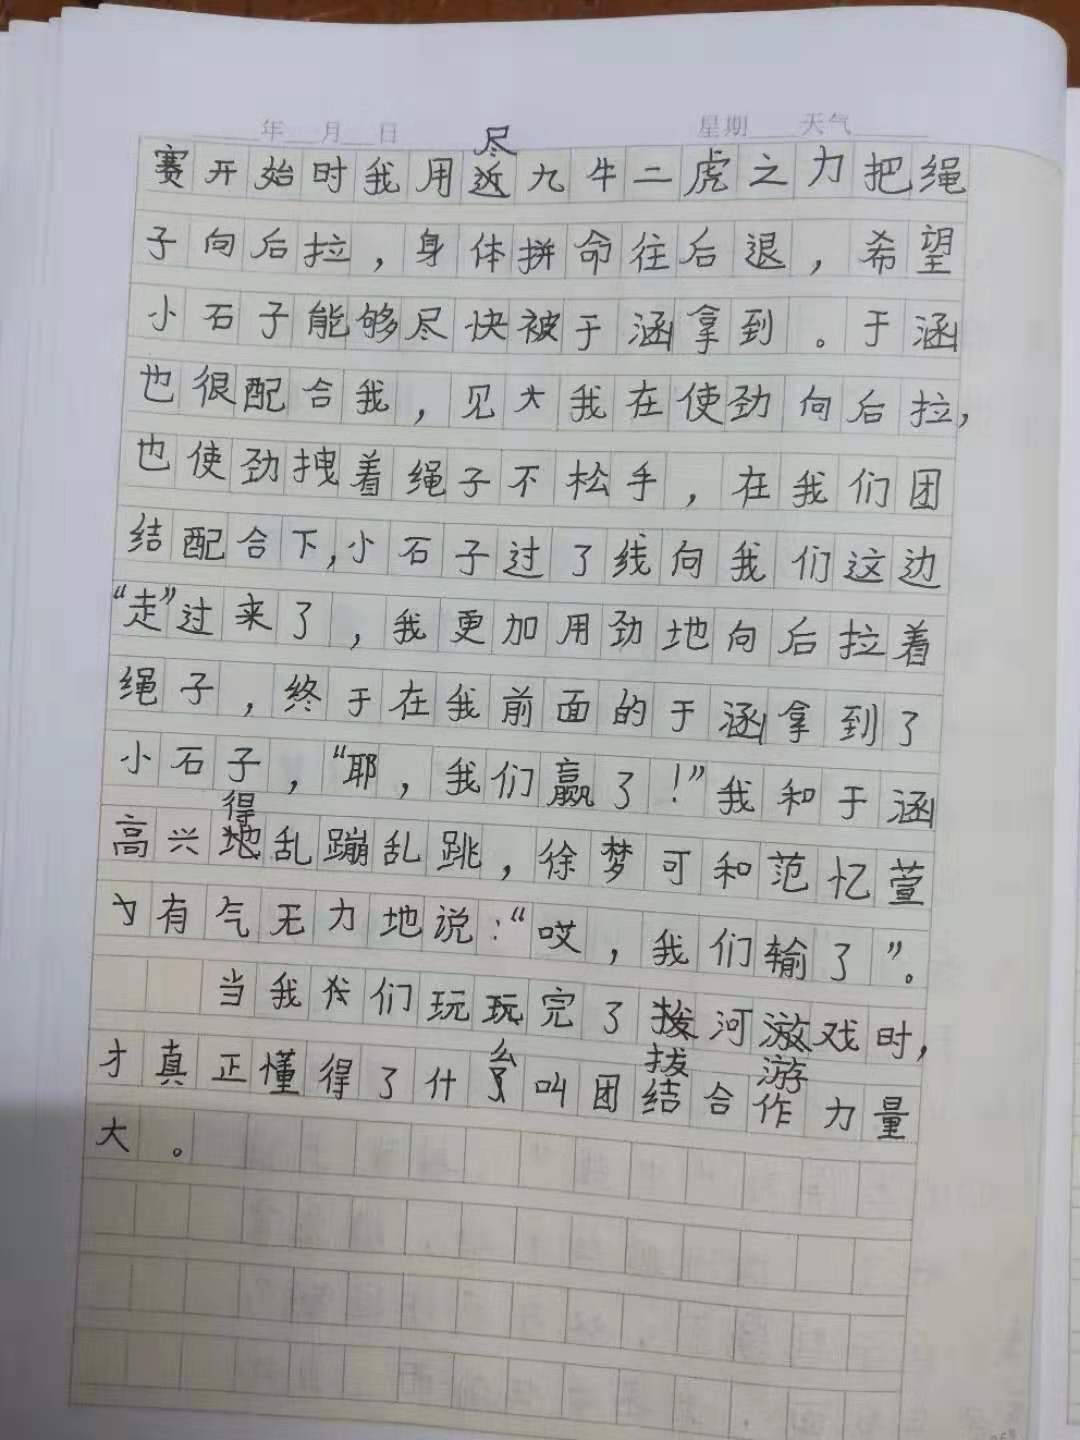 年 月 日 星期 天气
赛开始时我用尽九牛二虎之力把绳
子向后拉，身体拼命往后退，希望
小石子能够尽快被于涵拿到。于涵
也很配合我，见我在使劲向后拉，
也使劲拽着绳子不松手，在我们团
结配合下，小石子过了线向我们这边
“走”过来了，我更加用劲地向后拉着
绳子，终于在我前面的于涵拿到了
小石子，“耶，我们赢了！”我和于涵
高兴得乱蹦乱跳，徐梦可和范忆萱
有气无力地说：“哎，我们输了”。
当我们玩完了拔河游戏时，
才真正懂得了什么叫团结合作力量
大。